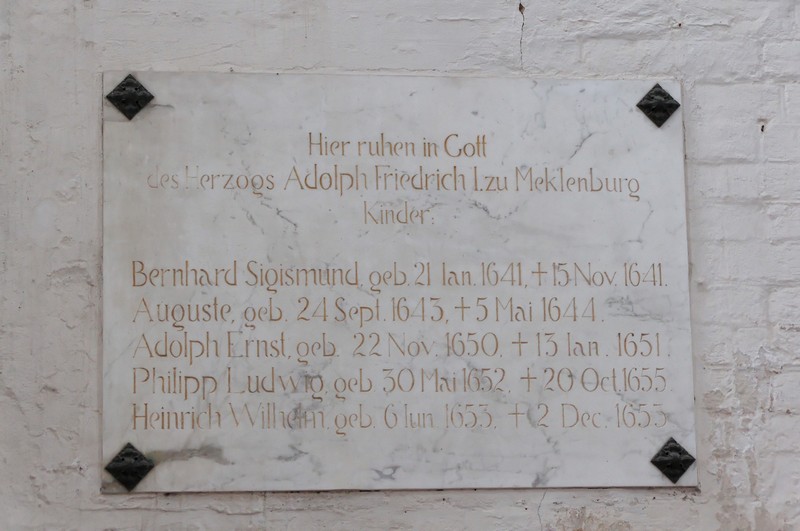 Hier ruhen in Gott
des Herzogs Adolph Friedrich I. zu Meklenburg
Kinder:
Bernhard Sigismund, geb. 21 Ian. 1641, + 15 Nov. 1641.
Auguste, geb. 24 Sept. 1643, + 5 Mai 1644.
Adolph Ernst, geb. 22 Nov. 1650, + 13 Ian. 1651.
Philipp Ludwig, geb. 30 Mai 1652, + 20 Oct. 1655.
Heinrich Wilhelm, geb. 6 Iun. 1653, + 2 Dec. 1653